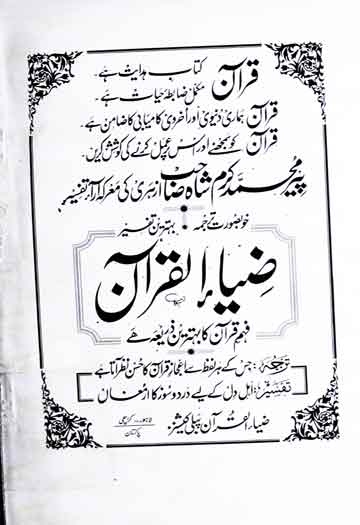 قرآن کتاب ہدایت ہے۔
مکمل ضابطۂ حیات ہے۔
قرآن ہماری دنیوی اور اُخروی کامیابی کا ضامن ہے۔
قرآن کو سمجھنے اور اس پر عمل کرنے کی کوشش کریں۔
پیر محمد کرم شاہ صاحب ازہری کی معرکہ آرا تفسیر
خوبصورت ترجمہ • بہترین تفسیر
ضیاء القرآن
فہمِ قرآن کا بہترین ذریعہ ہے
ترجمہ: جس کے ہر لفظ سے اعجازِ قرآن کا حُسن نظر آتا ہے
تفسیر: اہلِ دل کے لیے درد و سوز کا ارمغان
ضیاء القرآن پبلی کیشنز
لاہور - کراچی
پاکستان